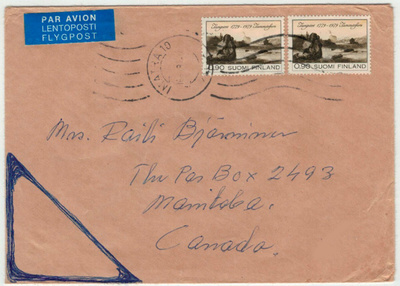 PAR AVION
LENTOPOSTI
FLYGPOST
1779-1979
0,90 SUOMI FINLAND
1779-1979
0,90 SUOMI FINLAND
Mrs. Raili
The Pas Box 2493
Manitoba.
Canada.